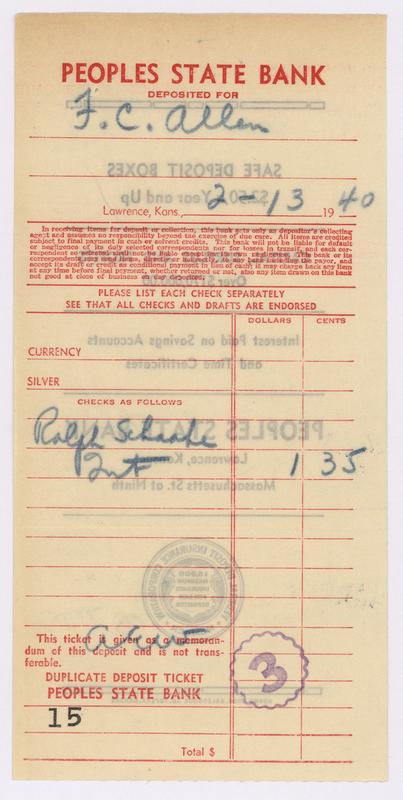 PEOPLES STATE BANK
DEPOSITED FOR
F. C. Allen
Lawrence, Kans., 2-13 1940
In receiving items for deposit or collection, this bank acts only as depositor's collecting
agent and assumes no responsibility beyond the exercise of due care. All items are credited
subject to final payment in cash or solvent credits. This bank will not be liable for default
or negligence of its duly selected correspondents nor for losses in transit, and each cor-
respondent so selected shall not be liable except for its own negligence. This bank or its
correspondents may send items, directly or indirectly, to any bank including the payor, and
accept its draft or credit as conditional payment in lieu of cash; it may charge back any item
at any time before final payment, whether returned or not, also any item drawn on this bank
not good at close of business on day deposited.
PLEASE LIST EACH CHECK SEPARATELY
SEE THAT ALL CHECKS AND DRAFTS ARE ENDORSED
DOLLARS CENTS
CURRENCY
SILVER
CHECKS AS FOLLOWS
Ralph Schaake
Int 1 35
This ticket is given as a memoran-
dum of this deposit and is not trans-
ferable.
DUPLICATE DEPOSIT TICKET
PEOPLES STATE BANK
3
15
Total $
SAFE DEPOSIT BOXES
$2.50 Year and Up
Interest Paid on Savings Accounts
and Time Certificates
PEOPLES STATE BANK
Lawrence, Kans.
Massachusetts St. at Ninth